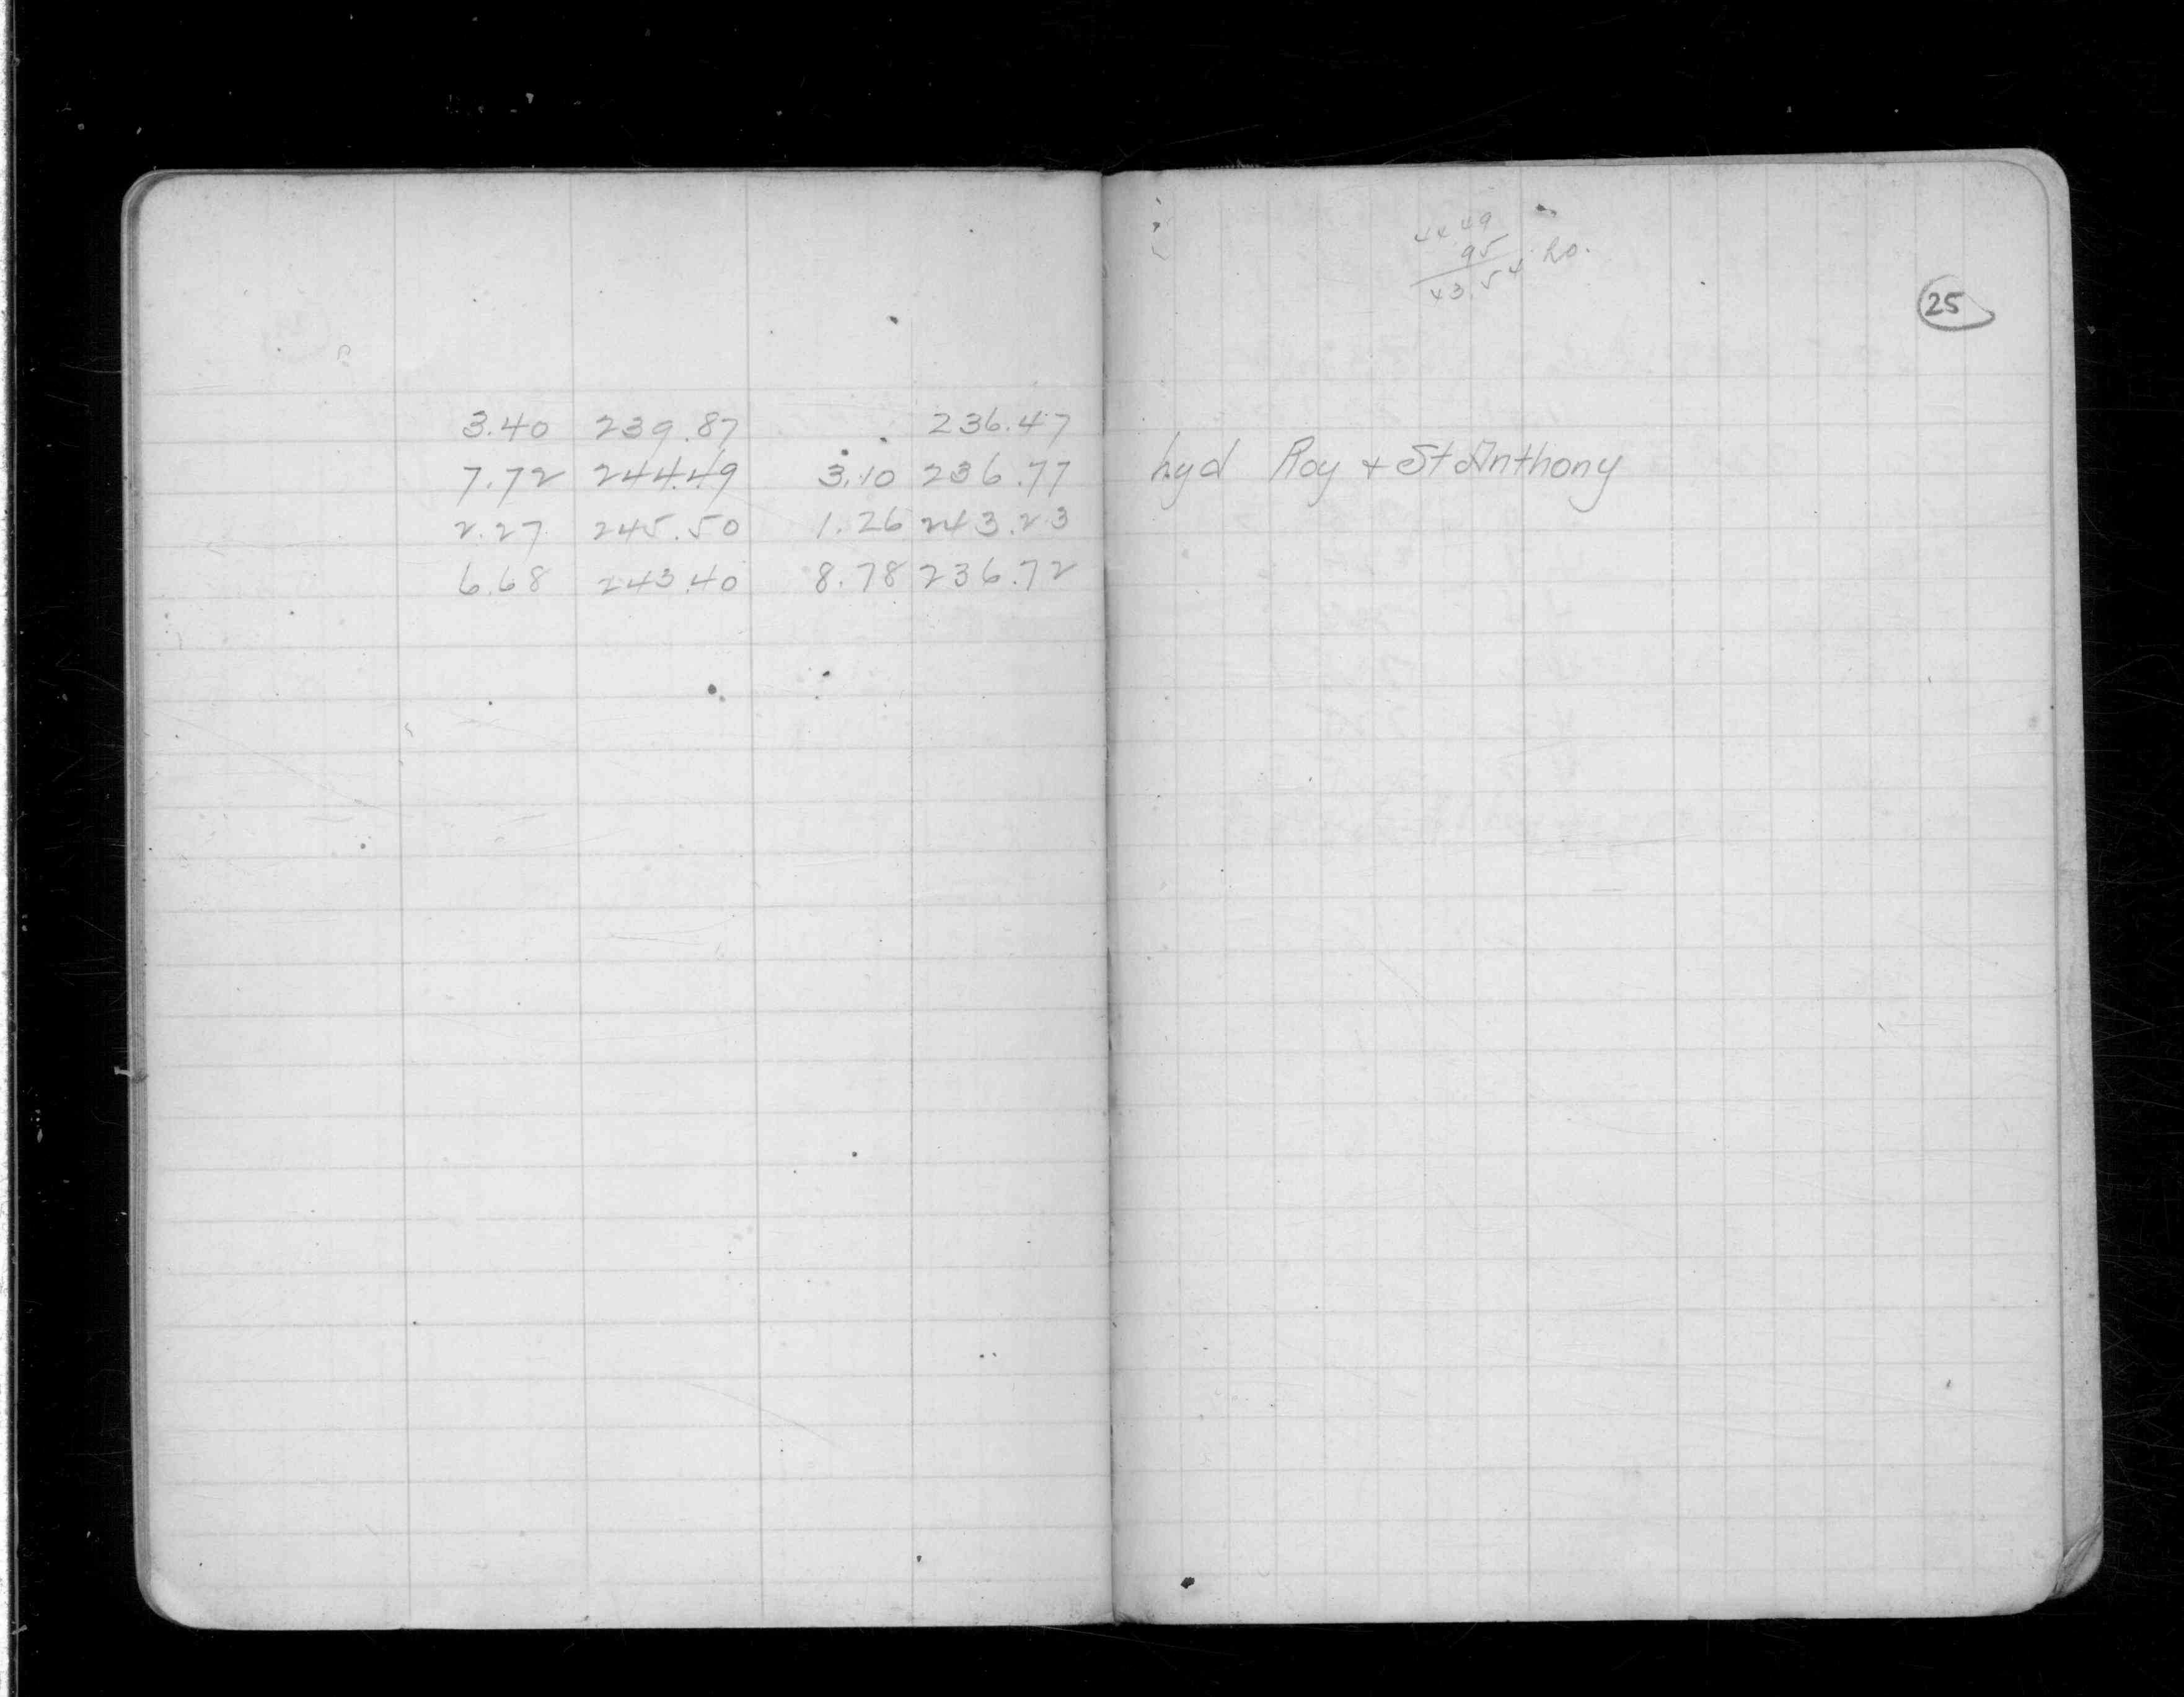 44.49
95
43.54
25
3.40 239.87 236.47
7.72 244.49 3.10 236.77 hyd Roy + St Anthony
2.27 245.50 1.26 243.23
6.68 243.40 8.78 236.72